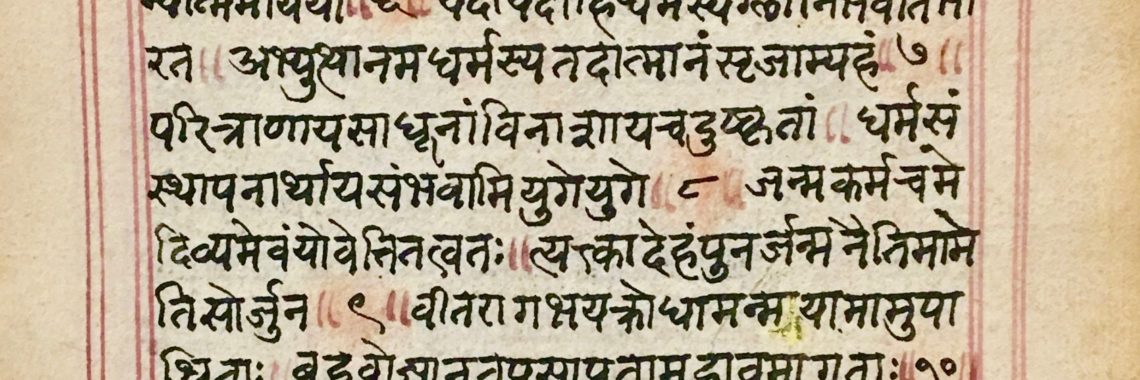 म्यात्ममायया ॥ ६ ॥ यदायदाहिधर्मस्यग्लानिर्भवतिभा
रत ॥ अभ्युत्थानमधर्मस्यतदात्मानंसृजाम्यहं ॥ ७ ॥
परित्राणायसाधूनांविनाशायचदुष्कृतां ॥ धर्मसं
स्थापनार्थायसंभवामियुगेयुगे ॥ ८ ॥ जन्मकर्मचमे
दिव्यमेवंयोवेत्तितत्वतः ॥ त्यक्त्कादेहंपुनर्जन्मनैतिमामे
तिसोर्जुन ॥ ९ ॥ वीतरागभयक्रोधामन्मयामामुपा
श्रिताः बहवोज्ञानतपसापूतामद्भावमागताः ॥ १०